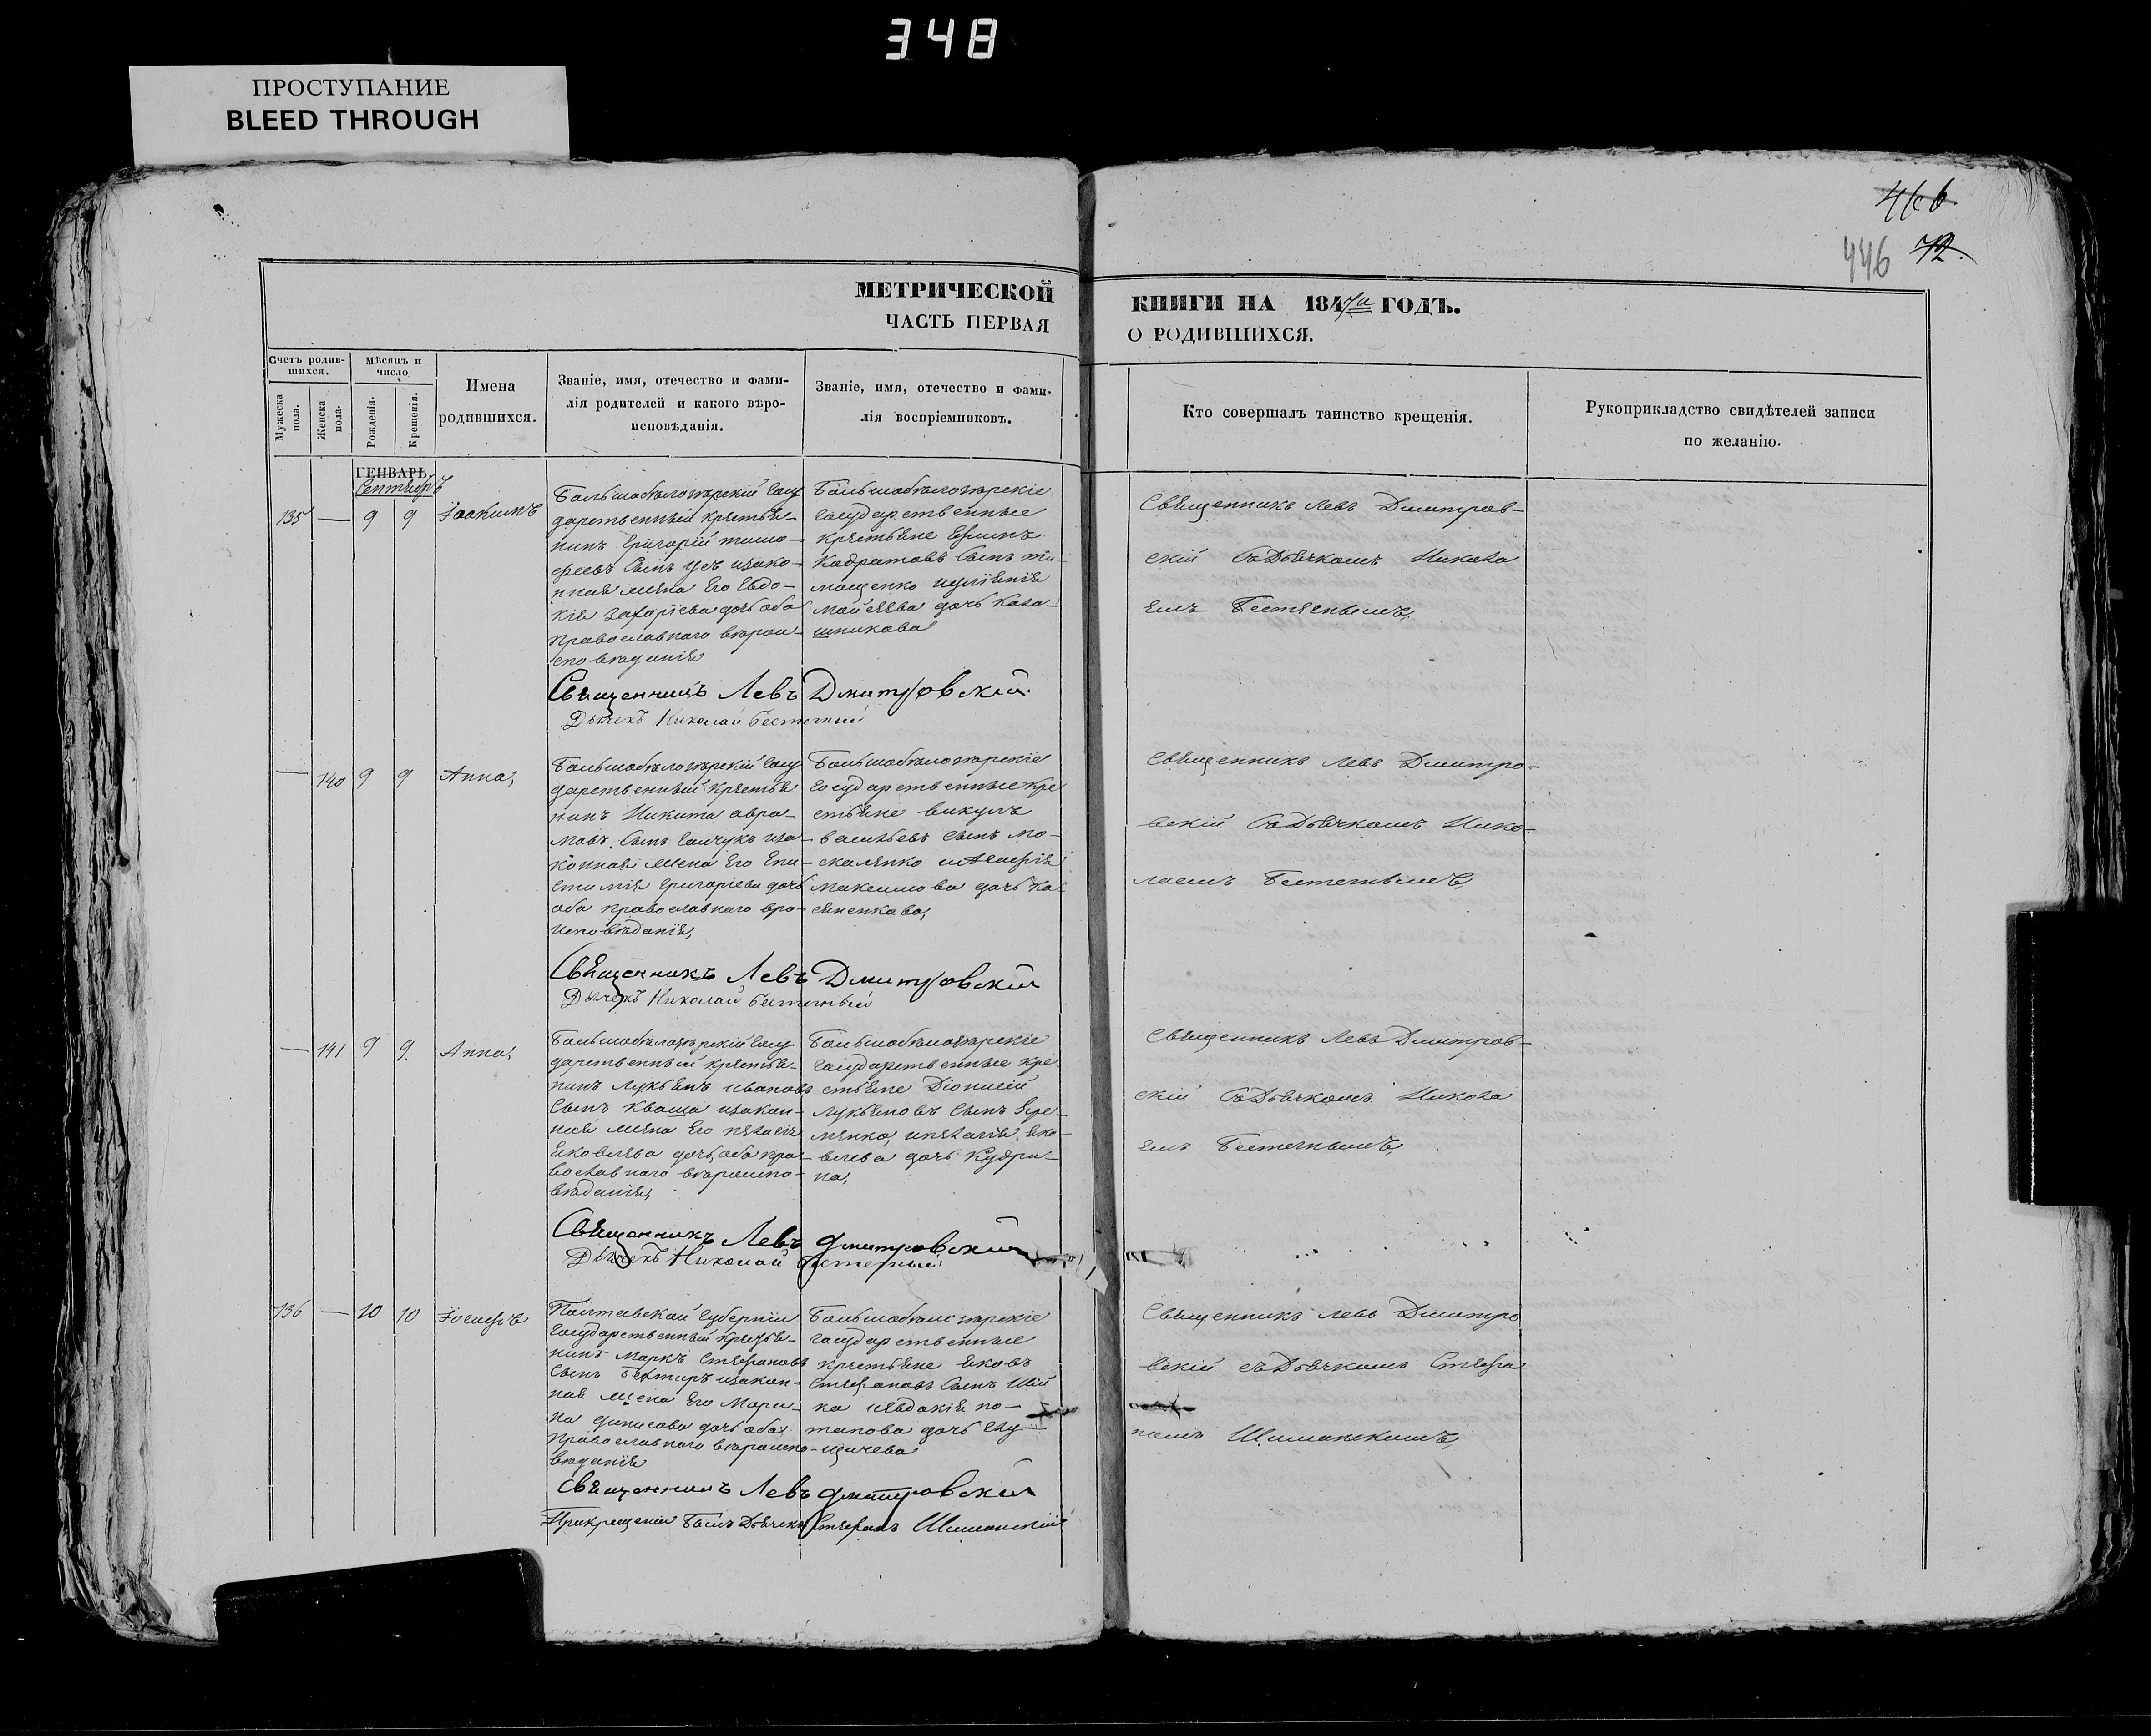 348
ПРОСТУПАНИЕ
BLEED THROUGH
466.
446 72.
МЕТРИЧЕСКОЙ КНИГИ НА 1847й ГОДЪ.
ЧАСТЬ ПЕРВАЯ О РОДИВШИХСЯ.
Счетъ родив-
шихся.
Мѣсяцъ и
число
Мужеска пола.
Женска пола.
Рожденія.
Крещенія.
Имена
родившихся.
Званіе, имя, отечество и фами-
лія родителей и какого вѣро-
исповѣданія.
Званіе, имя, отечество и фами-
лія воспріемниковъ.
Кто совершалъ таинство крещенія.
Рукоприкладство свидѣтелей записи
по желанію.
ГЕНВАРЬ.
Сентябрь
135 — 9 9 Іоакимъ
Большебѣлозѣрскій Госу
дарственный крестья-
нинъ Григорій тимо-
феевъ Сынъ изако-
нная жена Его Евдо-
кія Захаріева дочь оба
Православнаго вѣрои-
сповѣданія
Большебѣлозѣрскіе
Государственные
крестьяне
Сынъ ти-
мощенко
дочь Кала-
шникова
Священникъ Левъ Дмитров-
скій съ Дьячкомъ Никола
емъ
Священникъ Левъ Дмитровскій
Дьячекъ Николай
— 140 9 9 Анна,
Большебѣлозѣрскій Госу
дарственный крестья
нинъ Никита авра-
мовъ Сынъ иза-
конная жена Его Епи-
стимія Григоріева дочь
оба православнаго вѣро-
исповѣданія,
Большебѣлозѣрскіе
Государственные кре
стьяне викулъ
васильевъ Сынъ Мо-
скаленко
максимова дочь Ка-

Священникъ Левъ Дмитро-
вскій съ Дьячкомъ Нико-
лаемъ
Священникъ Левъ Дмитровскій
Дьячекъ Николай
— 141 9 9. Анна,
Большебѣлозѣрскій Госу
дарственный крестья-
нинъ лукьянъ ивановъ
Сынъ Кваша изакон-
ная жена Его пелагія
Яковлева дочь, оба пра-
вославнаго вѣроиспо-
вѣданія,
Большебѣлозѣрскіе
Государственные кре
стьяне Діонисій
Лукьяновъ Сынъ Яре-
менко, ипелагія Яко-
влева дочь Кудри-
на,
Священникъ Левъ Дмитров-
скій съ Дьячкомъ Никола
емъ
Священникъ Левъ Дмитровскій
Дьячекъ Николай
136 — 10 10 Іосифъ
Полтавской Губерніи
Государственный крестья-
нинъ Маркъ Стефановъ
Сынъ изакон-
ная жена Его Мари-
на Динисова дочь оба
Православнаго вѣроиспо-
вѣданія
Большебѣлозѣрскіе
государственные
крестьяне Яковъ
Стефановъ Сынъ Шій
ка иевдокія по-
тапова дочь

Священникъ Левъ Дмитро
вскій съ Дьячкомъ Стефа
номъ Шиманскимъ,
Священникъ Левъ Дмитровскій
При крещеніи былъ Дьячекъ Стефанъ Шиманскій